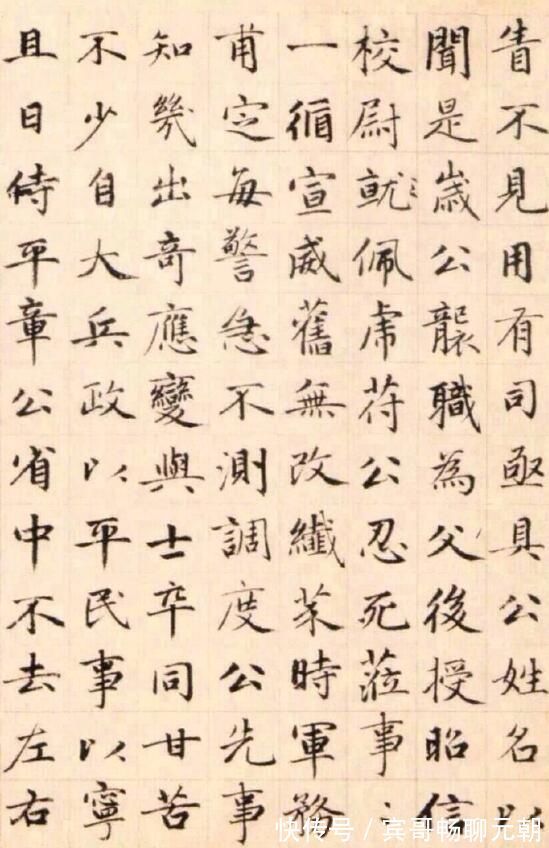 眚不見用有司亟具公姓名以
聞是歲公襲職為父後授昭信
校尉就佩虎符公忍死蒞事〻
一循宣威舊無改纖芥時軍務
甫定每警急不測調度公先事
知幾出奇應變與士卒同甘苦
不少自大兵政以平民事以寧
且日侍平章公省中不去左右
快传号 / 宾哥畅聊元朝